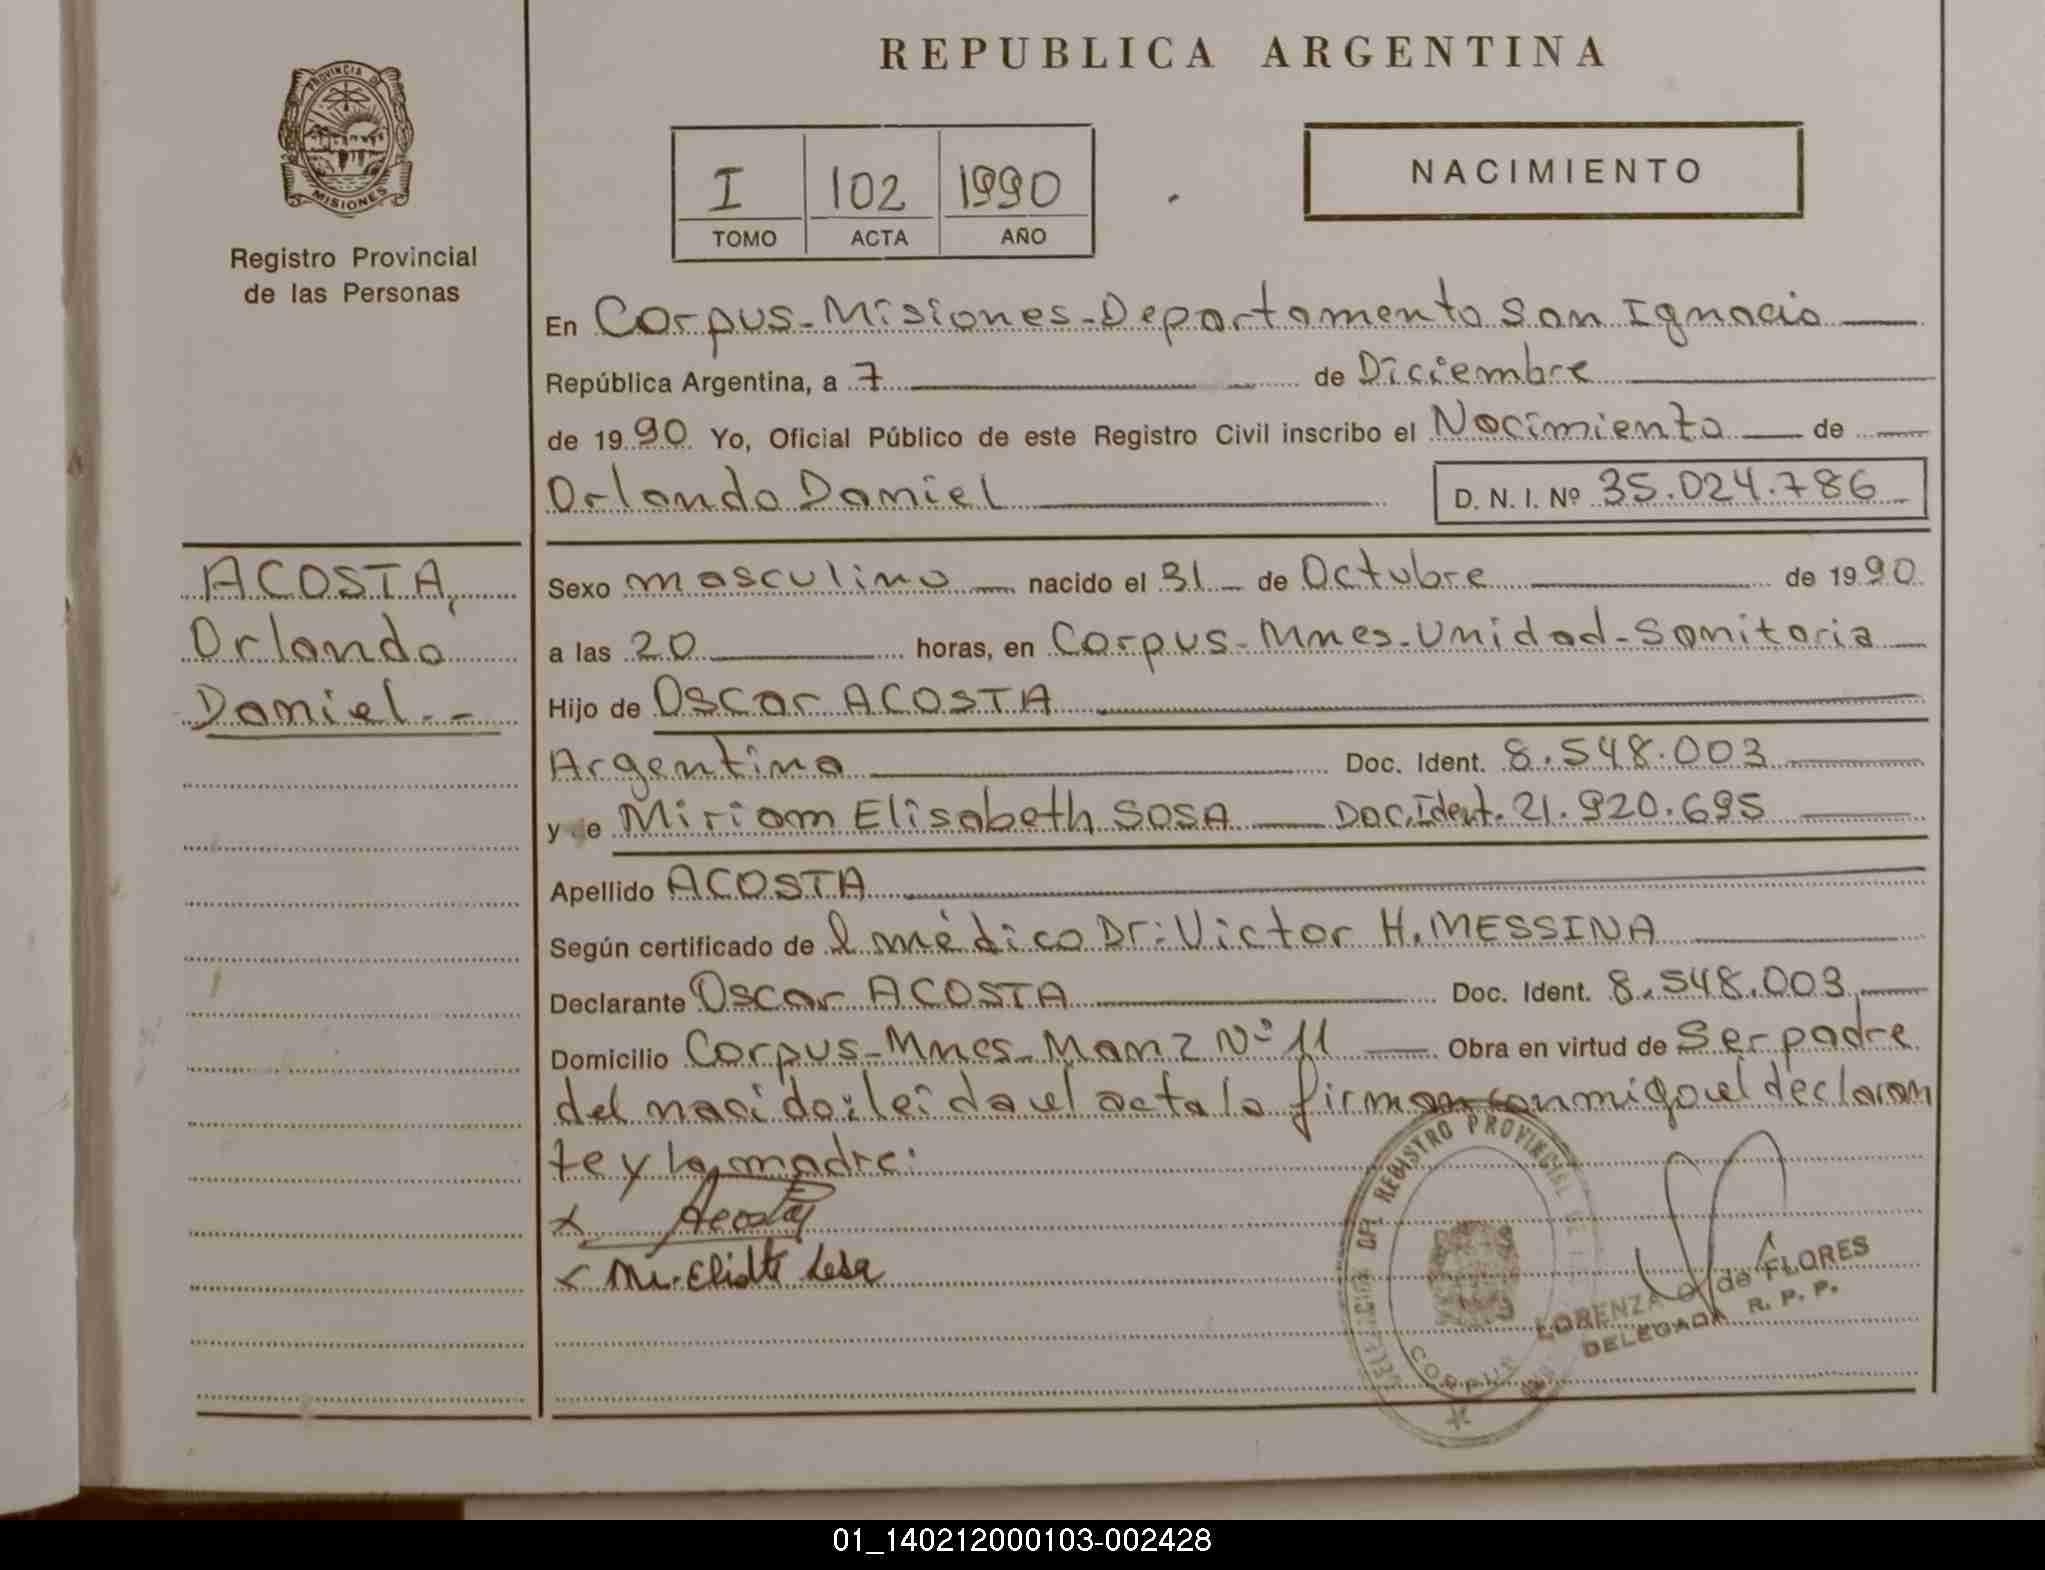 REPUBLICA ARGENTINA
PROVINCIA D
MISIONES
Registro Provincial
de las Personas
I 102 1990
TOMO ACTA AÑO
NACIMIENTO
En Corpus-Misiones-Departamento San Ignacio
República Argentina, a 7 de Diciembre
de 1990 Yo, Oficial Público de este Registro Civil inscribo el Nacimiento de
Orlando Daniel D. N. I. Nº 35.024.786
ACOSTA,
Orlando
Daniel.--
Sexo masculino nacido el 31 de Octubre de 1990
a las 20 horas, en Corpus-Mnes-Unidad-Sanitaria
Hijo de Oscar ACOSTA
Argentino Doc. Ident. 8.548.003
y de Miriam Elisabeth SOSA Doc.Ident. 21.920.695
Apellido ACOSTA
Según certificado de l médico Dr: Victor H. MESSINA
Declarante Oscar ACOSTA Doc. Ident. 8.548.003
Domicilio Corpus-Mnes-Manz Nº 11 Obra en virtud de Ser padre
del nacido: leida el acta la firman conmigo el declaran
te y la madre:
x Acosta
x Mi. Sosa
REGISTRO PROVINCIAL DE
CORPUS
LORENZA de FLORES
DELEGADA R. P. P.
01_140212000103-002428